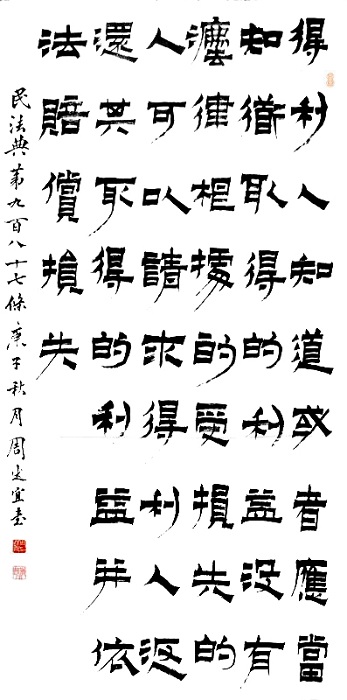 得利人知道或者應當
知衜取得的利益沒有
灋律根據的受損失的
人可以請求得利人返
還其取得的利益并依
法賠償損失
民法典第九百八十七條庚子秋月周宜書